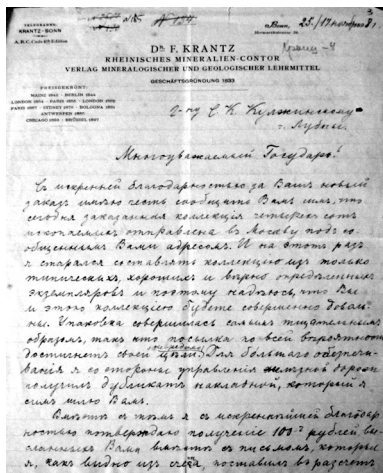 TELEGRAMME:
KRANTZ-BONN
A.B.C. Code 5th Edition
Bonn,
DR. F. KRANTZ
RHEINISCHES MINERALIEN-CONTOR
VERLAG MINERALOGISCHER UND GEOLOGISCHER LEHRMITTEL
GESCHÄFTSGRÜNDUNG 1833
PREISGEKRÖNT:
MAINZ 1842 · BERLIN 1844
LONDON 1854 · PARIS 1855 · LONDON 1862
PARIS 1867 · SYDNEY 1879 · BOLOGNA 1881
ANTWERPEN 1885
CHICAGO 1893 · BRÜSSEL 1897
С. К. Кульжинскому
Лубны
Многоуважаемый Государь!
Съ искренней благодарностью за Вашъ новый
заказъ имѣю честь сообщить Вамъ симъ, что
сегодня заказанная коллекція четыресотъ
ископаемыхъ отправлена въ Москву подъ со-
общеннымъ Вами адресомъ. И на этотъ разъ
я старался составлять коллекцію изъ только
типическихъ, хорошихъ и вѣрно опредѣленныхъ
экземпляровъ и поэтому надѣюсь, что Вы
и этою коллекціею будете совершенно доволь-
ны. Упаковка совершилась самымъ тщательнымъ
образомъ, такъ что посылка по всей вѣроятности
достигнетъ своей цѣли. Для большаго обезпечи-
ванія я со стороны управленія желѣзной дороги
получилъ дубликатъ накладной, который я
симъ шлю Вамъ.
Вмѣстѣ съ тѣмъ я съ искреннѣйшей благодар-
ностью потверждаю полученіе 100 рублей, вы-
сланныхъ Вами вмѣстѣ съ письмомъ, которые
я, какъ видно изъ счёта, поставилъ въ разсчетъ